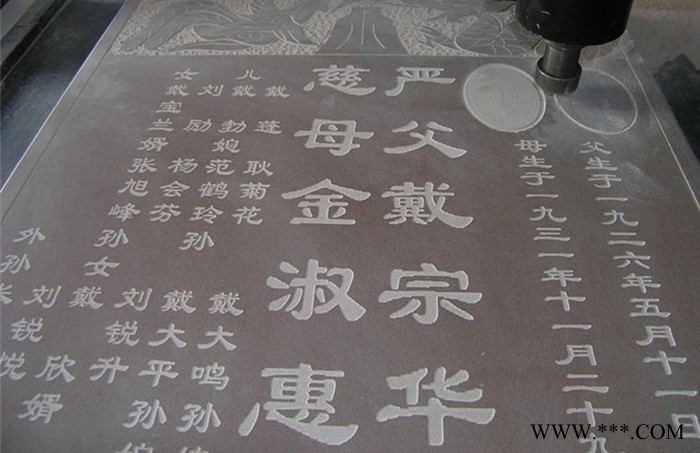 父生于一九二六年五月十一日
母生于一九三一年十一月二十九
严父戴宗华
慈母金淑惠
戴蓬
耿菊花
戴大鸣孙
儿戴勃媳范鹤玲孙
戴大平孙
刘励
杨会芬
刘锐升
女戴宝兰婿张旭峰孙女
戴欣婿
刘锐悦
外孙
WWW.***.COM